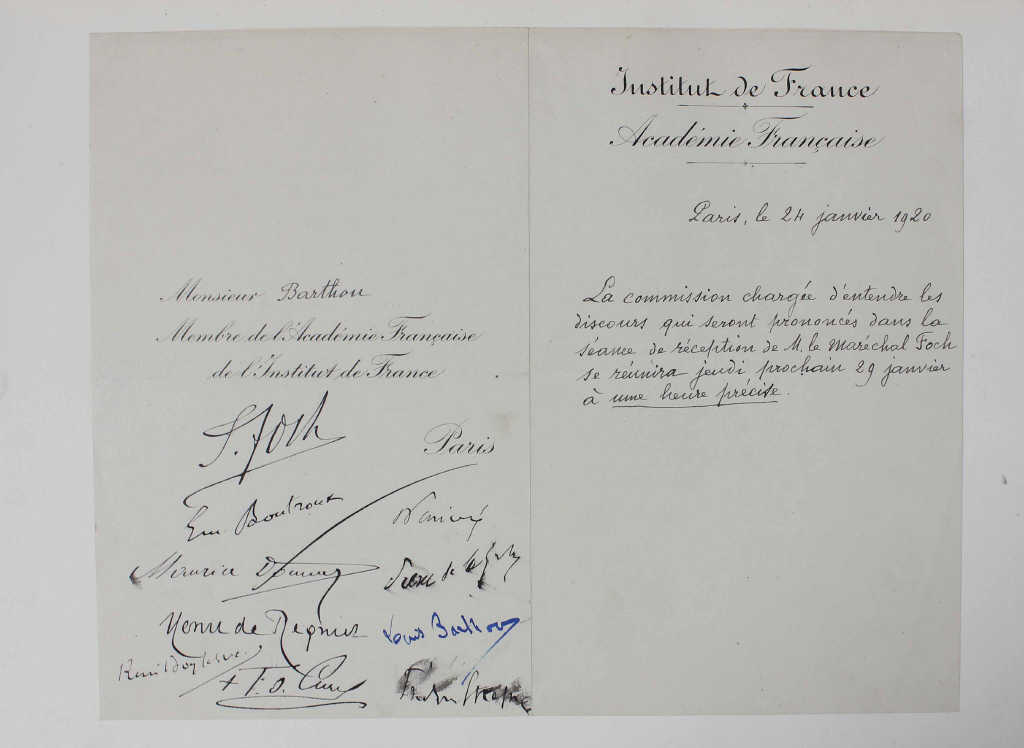 Institut de France
Académie Française
Paris, le 24 janvier 1920
La commission chargée d'entendre les
discours qui seront prononcés dans la
séance de réception de M. le Maréchal Foch
se réunira jeudi prochain 29 janvier
à une heure précise.
Monsieur Barthou
Membre de l'Académie Française
de l'Institut de France
Paris
Foch
Em Boutroux
Maurice Donnay
de la
Henri de Régnier
Louis Barthou
René Boylesve